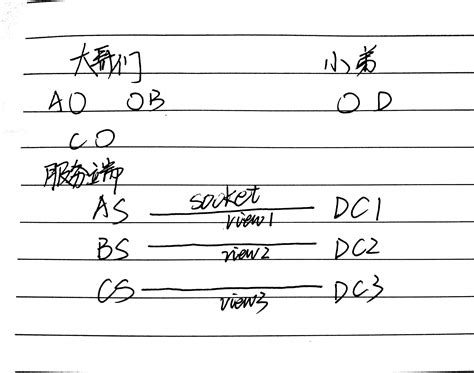 大哥们 小弟
AO OB O D
CO
服务端
AS socket view1 DC1
BS view2 DC2
CS view3 DC3